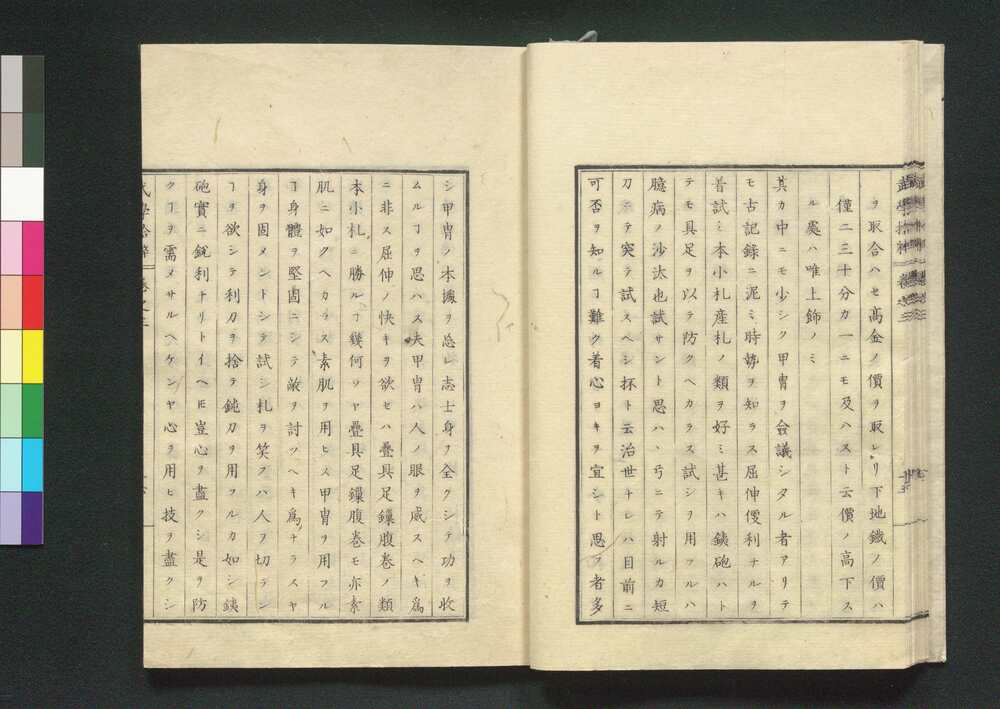 ヲ取合ハセ高金ノ價ヲ取レリ下地鐵ノ價ハ
僅二三十分カ一ニモ及ハスト云價ノ高下ス
ル處ハ唯上餝ノミ
其カ中ニモ少シク甲冑ヲ会議シタル者アリテ
モ古記録ニ泥ミ時勢ヲ知ラス屈伸便利ナルヲ
着試ミ本小札産札ノ類ヲ好ミ甚キハ銕砲ハト
テモ具足ヲ以テ防クヘカラス試シヲ用フルハ
臆病ノ沙汰也試サント思ハヽ弓ニテ射ルカ短
刀ニテ突テ試スヘシ抔ト云治世ナレハ目前ニ
可否ヲ知ルヿ難ク着心ヨキヲ宜シト思フ者多
シ甲冑ノ本據ヲ忘レ志士身ヲ全クシテ功ヲ收
ムルヿヲ思ハス夫甲冑ハ人ノ眼ヲ威スヘキ爲
ニ非ス屈伸ノ快キヲ欲セハ疊具足鏁腹巻ノ類
本小札ニ勝ルヿ幾何ソヤ疊具足鏁腹巻モ亦素
肌ニ如クヘカラス素肌ヲ用ヒス甲冑ヲ用フル
ヿ身體ヲ堅固ニシテ敵ヲ討ツヘキ爲ナラスヤ
身ヲ固メントシテ試シ札ヲ笑フハ人ヲ切テン
ヿヲ欲シテ利刀ヲ捨テ鈍刀ヲ用フルカ如シ銕
砲實ニ鋭利ナリトイヘ𪜈豈心ヲ盡クシ是ヲ防
クヿヲ需メサルヘケンヤ心ヲ用ヒ技ヲ盡クシ